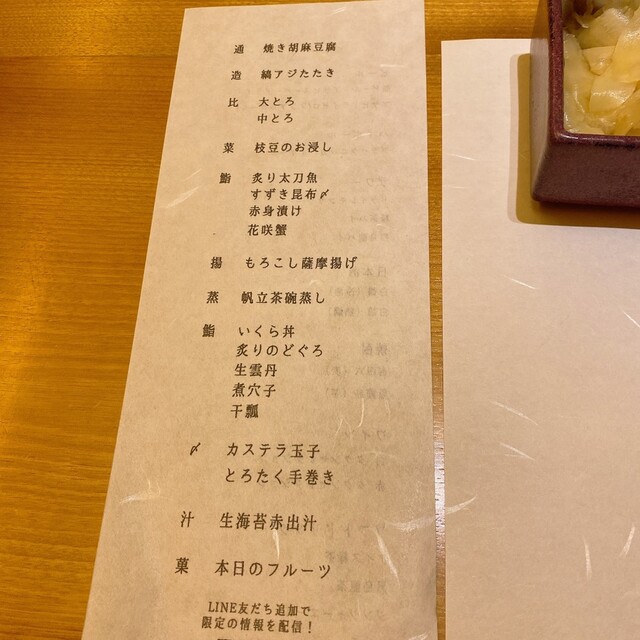 通 焼き胡麻豆腐
造 縞アジたたき
比 大とろ
中とろ
菜 枝豆のお浸し
鮨 炙り太刀魚
すずき昆布〆
赤身漬け
花咲蟹
揚 もろこし薩摩揚げ
蒸 帆立茶碗蒸し
鮨 いくら丼
炙りのどぐろ
生雲丹
煮穴子
干瓢
〆 カステラ玉子
とろたく手巻き
汁 生海苔赤出汁
菓 本日のフルーツ
LINE友だち追加で
限定の情報を配信!